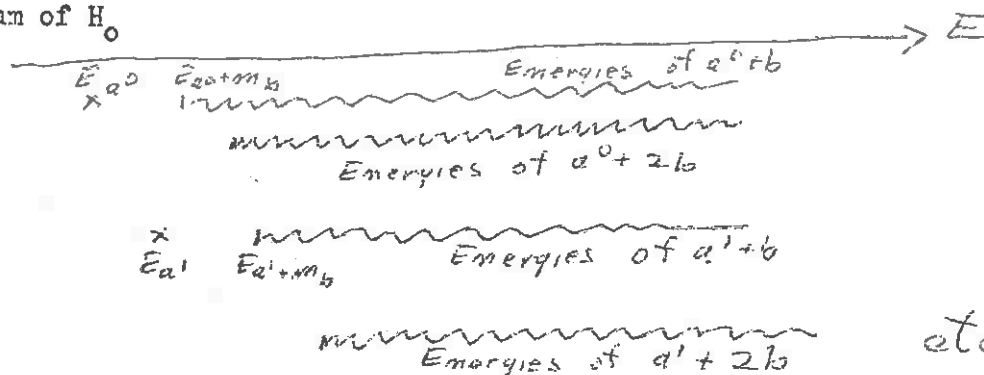 am of H₀
E
E_a⁰ E_a⁰+m_b Energies of a⁰+b
Energies of a⁰+2b
E_a¹ E_a¹+m_b Energies of a¹+b
Energies of a¹+2b etc